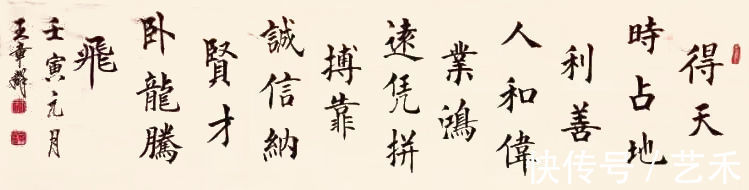 得天
時占地
利善
人和偉
業鴻
遠凭拼
搏靠
誠信納
賢才
卧龍騰
飛
壬寅元月
快传号 / 艺禾